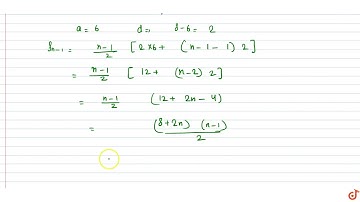 a = 6 d = 8-6 = 2
Sn-1 = n-1/2 [ 2×6 + (n-1-1) 2 ]
= n-1/2 [ 12 + (n-2) 2 ]
= n-1/2 (12 + 2n - 4)
= (8+2n) (n-1)/2